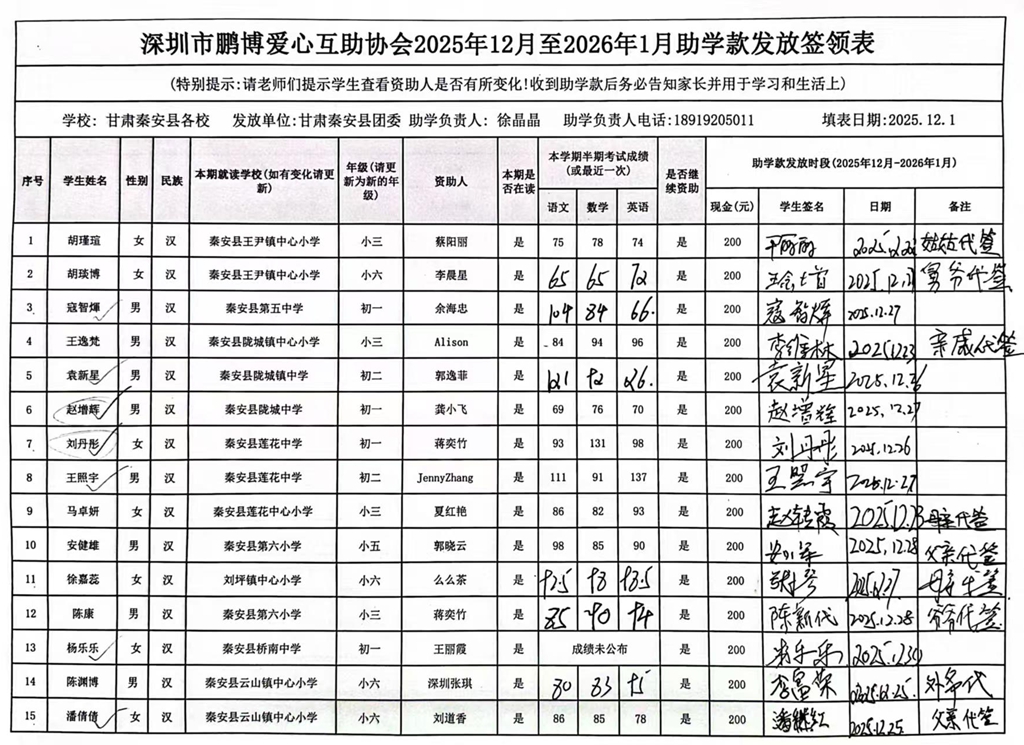 深圳市鹏博爱心互助协会2025年12月至2026年1月助学款发放签领表
(特别提示:请老师们提示学生查看资助人是否有所变化!收到助学款后务必告知家长并用于学习和生活上)
学校: 甘肃秦安县各校 发放单位:甘肃秦安县团委 助学负责人: 徐晶晶 助学负责人电话:18919205011 填表日期:2025.12.1
序号 学生姓名 性别 民族 本期就读学校(如有变化请更新) 年级(请更新为新的年级) 资助人 本期是否在读 本学期半期考试成绩(或最近一次) 是否继续资助 助学款发放时段(2025年12月-2026年1月)
语文 数学 英语 现金(元) 学生签名 日期 备注
1 胡瑾瑄 女 汉 秦安县王尹镇中心小学 小三 蔡阳丽 是 75 78 74 是 200 姑姑代签
2 胡琰博 女 汉 秦安县王尹镇中心小学 小六 李晨星 是 65 65 72 是 200 代签
3 寇智煇 男 汉 秦安县第五中学 初一 余海忠 是 104 84 66. 是 200 寇智煇 2025.12.27
4 王逸梵 男 汉 秦安县陇城镇中心小学 小三 Alison 是 84 94 96 是 200 李维林 2025.12.23 亲戚代签
5 袁新星 男 汉 秦安县陇城镇中学 初二 郭逸菲 是 26. 是 200 袁新星 2025.12.26
6 赵增辉 男 汉 秦安县陇城中学 初一 龚小飞 是 69 76 70 是 200 赵增辉 2025.12.27
7 刘丹彤 女 汉 秦安县莲花中学 初一 蒋奕竹 是 93 131 98 是 200 刘丹彤 2025.12.26
8 王照宇 男 汉 秦安县莲花中学 初二 JennyZhang 是 111 91 137 是 200 王照宇 2025.12.27
9 马卓妍 女 汉 秦安县莲花中心小学 小三 夏红艳 是 86 82 93 是 200 母亲代签
10 安健雄 男 汉 秦安县第六小学 小五 郭晓云 是 98 85 90 是 200 2025.12.28 父亲代签
11 徐嘉蕊 女 汉 刘坪镇中心小学 小六 么么茶 是 是 200 2025.12.27
12 陈康 男 汉 秦安县第六小学 小三 蒋奕竹 是 85 90 94 是 200 陈新代 2025.12.28 爷爷代签
13 杨乐乐 女 汉 秦安县桥南中学 初一 王丽霞 是 成绩未公布 是 200
14 陈渊博 男 汉 秦安县云山镇中心小学 小六 深圳张琪 是 80 83 95 是 200 2025.12.25. 外爷代
15 潘倩倩 女 汉 秦安县云山镇中心小学 小六 刘道香 是 86 85 78 是 200 潘继红 2025.12.25 父亲代签